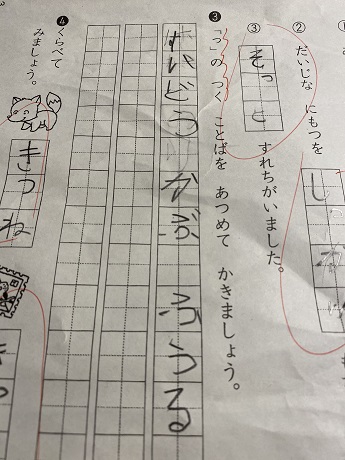 ①
② だいじな にもつを
③ そっと すれちがいました。
❸ 「っ」の つく ことばを あつめて かきましょう。
かぶ
❹ くらべて
みましょう。
きつね